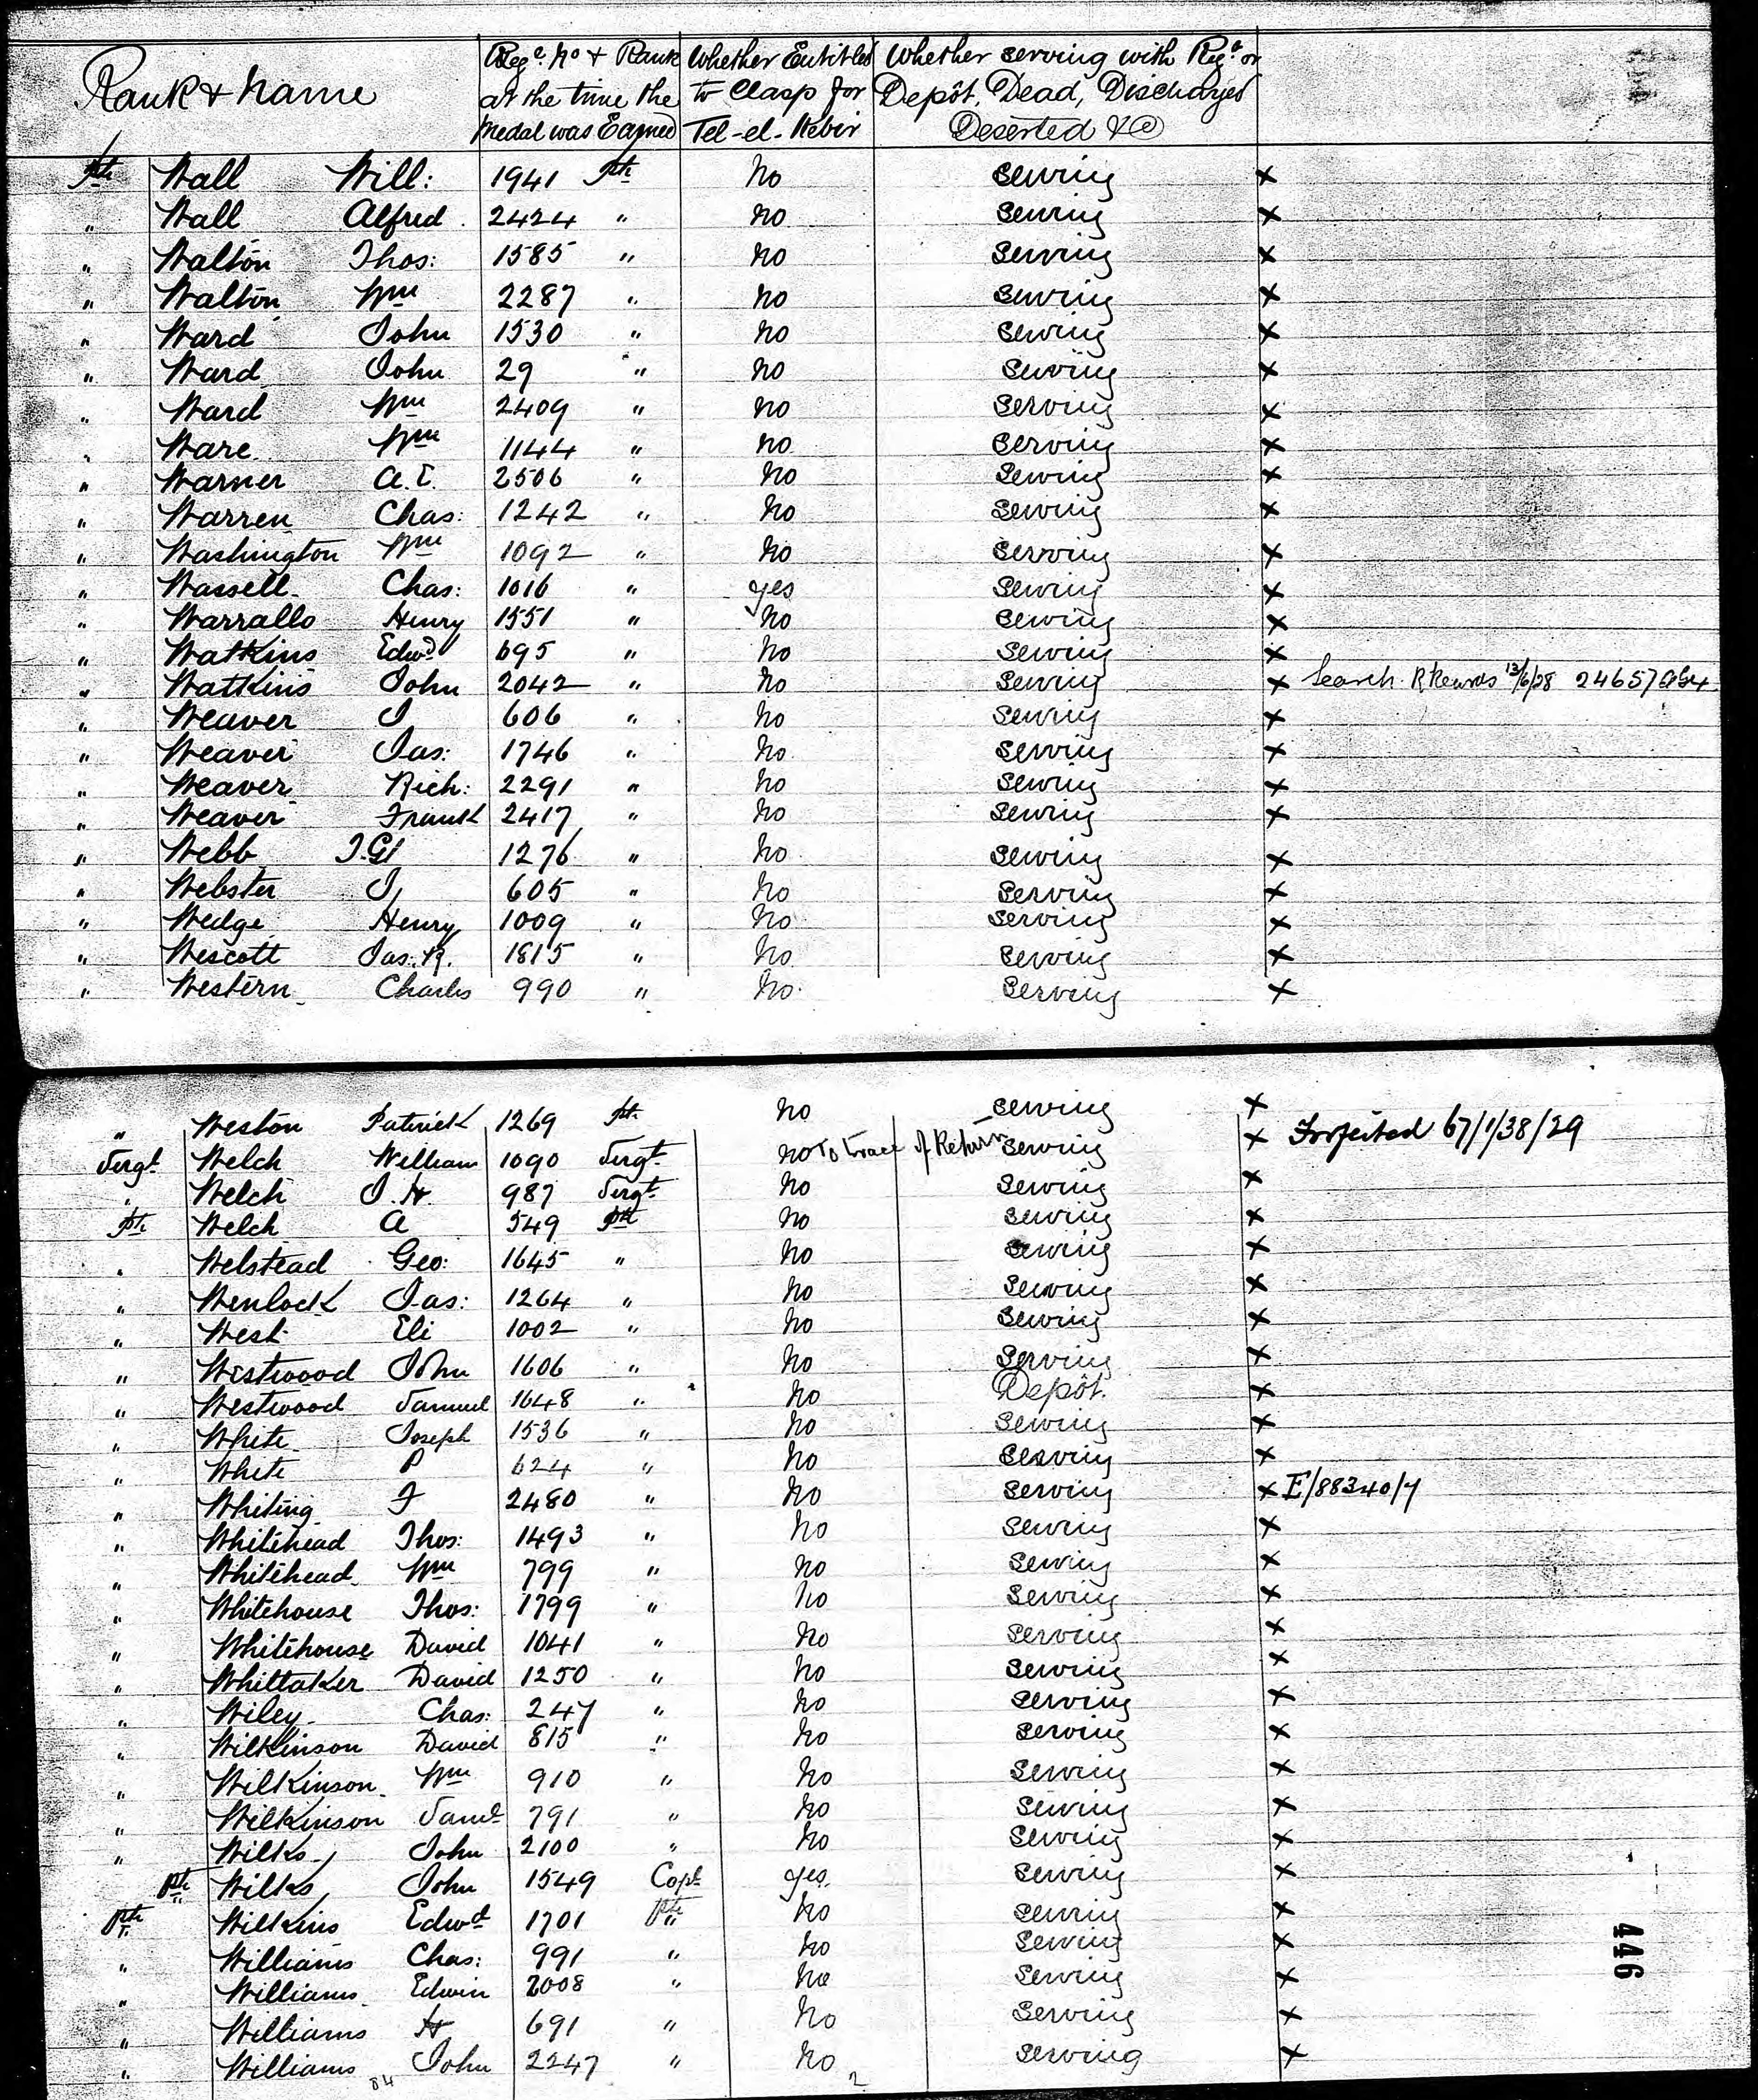 Rank & Name
Reg. No & Rank at the time the Medal was Earned
Whether Entitled to Clasp for Tel-el-Kebir
Whether serving with Regt. or Depôt, Dead, Discharged Deserted &c
Pte Wall Will: 1941 Pte No Serving X
" Wall Alfred 2424 " No Serving X
" Walton Thos: 1585 " No Serving X
" Walton Wm 2287 " No Serving X
" Ward John 1530 " No Serving X
" Ward John 29 " No Serving X
" Ward Wm 2409 " No Serving X
" Ware Wm 1144 " No Serving X
" Warner A.E. 2506 " No Serving X
" Warren Chas: 1242 " No Serving X
" Washington Wm 1092 " No Serving X
" Wassell Chas: 1016 " Yes Serving X
" Warrallo Henry 1551 " No Serving X
" Watkins Edwd 695 " No Serving X
" Watkins John 2042 " No Serving X Search 13/6/28 24657
" Weaver J 606 " No Serving X
" Weaver Jas: 1746 " No Serving X
" Weaver Rich: 2291 " No Serving X
" Weaver Frank 2417 " No Serving X
" Webb J.G. 1276 " No Serving X
" Webster J 605 " No Serving X
" Wedge Henry 1009 " No Serving X
" Wescott Jas. R. 1815 " No Serving X
" Western Charles 990 " No Serving X
" Weston Patrick 1269 Pte No Serving X
Sergt. Welch William 1090 Sergt. No To trace of Return Serving X Forfeited 67/1/38/29
" Welch J.H. 987 Sergt. No Serving X
Pte Welch A 549 Pte No Serving X
" Welstead Geo: 1645 " No Serving X
" Wenlock Jas: 1264 " No Serving X
" West Eli 1002 " No Serving X
" Westwood John 1606 " No Serving X
" Westwood Samuel 1648 " No Depôt. X
" White Joseph 1536 " No Serving X
" White P 624 " No Serving X
" Whiting F 2480 " No Serving X E/88340/4
" Whitehead Thos: 1493 " No Serving X
" Whitehead Wm 799 " No Serving X
" Whitehouse Thos: 1799 " No Serving X
" Whitehouse David 1041 " No Serving X
" Whittaker David 1250 " No Serving X
" Wiley Chas: 247 " No Serving X
" Wilkinson David 815 " No Serving X
" Wilkinson Wm 910 " No Serving X
" Wilkinson Saml 791 " No Serving X
" Wilks John 2100 " No Serving X
Pte Wilks John 1549 Copl Yes Serving X
Pte Wilkins Edwd 1701 Pte No Serving X
" Williams Chas: 991 " No Serving X
" Williams Edwin 2008 " No Serving X
" Williams H 691 " No Serving X
" Williams John 2247 " No Serving X
84 2
446